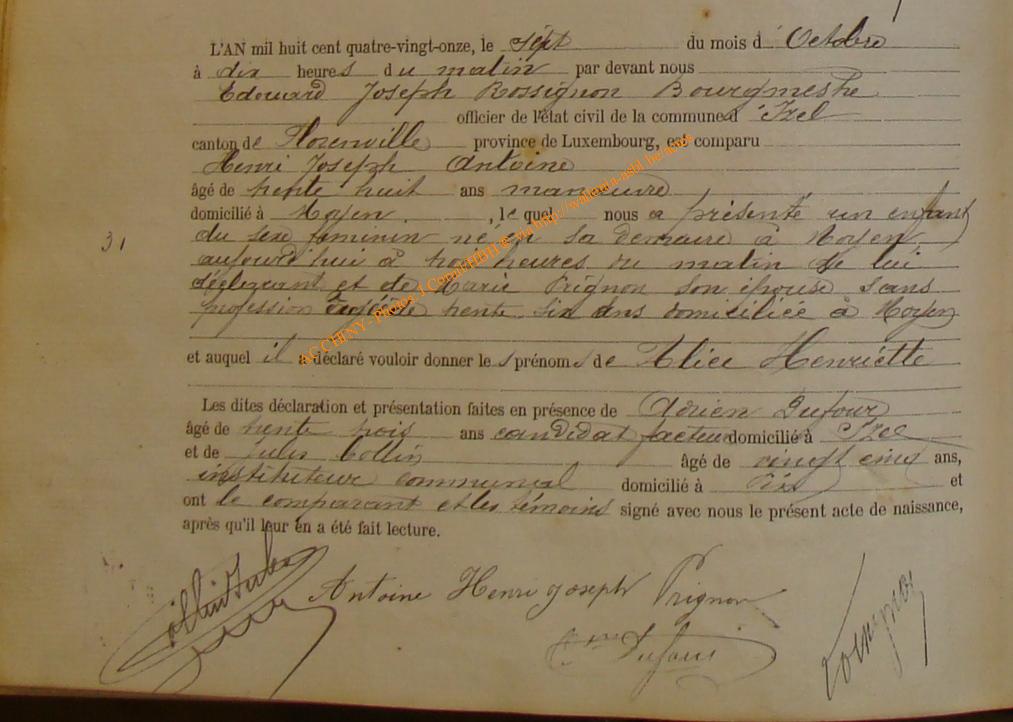 L'AN mil huit cent quatre-vingt-onze, le sept du mois d' Octobre
à dix heures du matin par devant nous
Edouard Joseph Rossignon Bourgmestre
officier de l'état civil de la commune d' Izel
canton de Florenville province de Luxembourg, est comparu
Henri Joseph Antoine
âgé de trente huit ans manœuvre
domicilié à Moyen, le quel nous a présenté un enfant
31
du sexe féminin né en sa demeure à Moyen
aujourd'hui à trois heures du matin de lui
déclarant et de Marie Prignon son épouse sans
profession âgée de trente six ans domiciliée à Moyen
et auquel il a déclaré vouloir donner les prénoms de Alice Henriette
Les dites déclaration et présentation faites en présence de Adrien Dufour
âgé de trente trois ans candidat facteur domicilié à Izel
et de Jules Collin âgé de vingt cinq ans,
instituteur communal domicilié à et
ont le comparant et les témoins signé avec nous le présent acte de naissance,
après qu'il leur en a été fait lecture.
Collin Jules Antoine Henri Joseph Prignon
Dufour